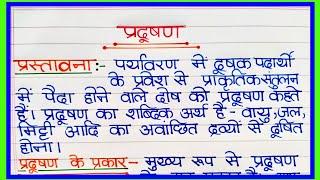 प्रदूषण
प्रस्तावना:- पर्यावरण में दूषक पदार्थो
के प्रवेश से प्राकृतिक संतुलन
में पैदा होने वाले दोष को प्रदूषण कहते
हैं। प्रदूषण का शाब्दिक अर्थ है - वायु, जल,
मिट्टी आदि का अवांछित द्रव्यों से दूषित
होना।
प्रदूषण के प्रकार- मुख्य रूप से प्रदूषण